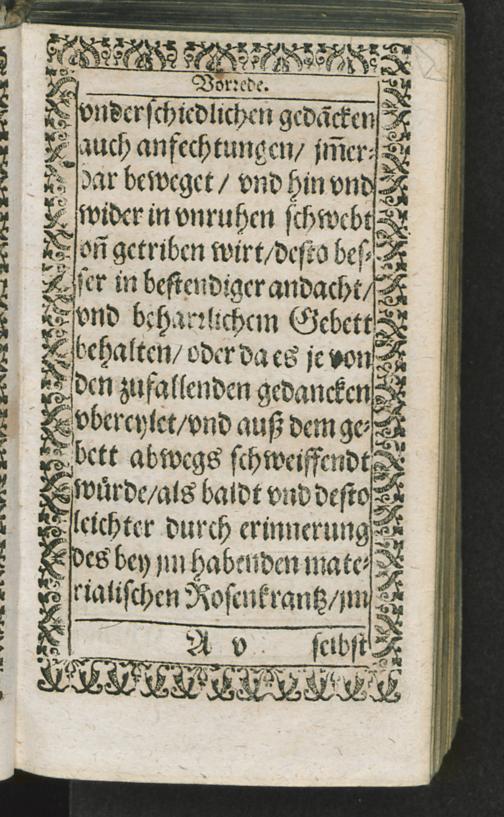 Vorrede.
vnderschiedlichen gedācken
auch anfechtungen/ jm̄er-
dar beweget / vnd hin vnd
wider in vnruhen schwebt
vn̄ getriben wirt/desto bes-
ser in bestendiger andacht/
vnd beharrlichem Gebett
behalten/ oder da es je von
den zufallenden gedancken
vbereylet/vnd auß dem ge-
bett abwegs schweiffendt
würde/als baldt vnd desto
leichter durch erinnerung
des bey jm habenden mate-
rialischen Rosenkrantz/jm
A v selbst